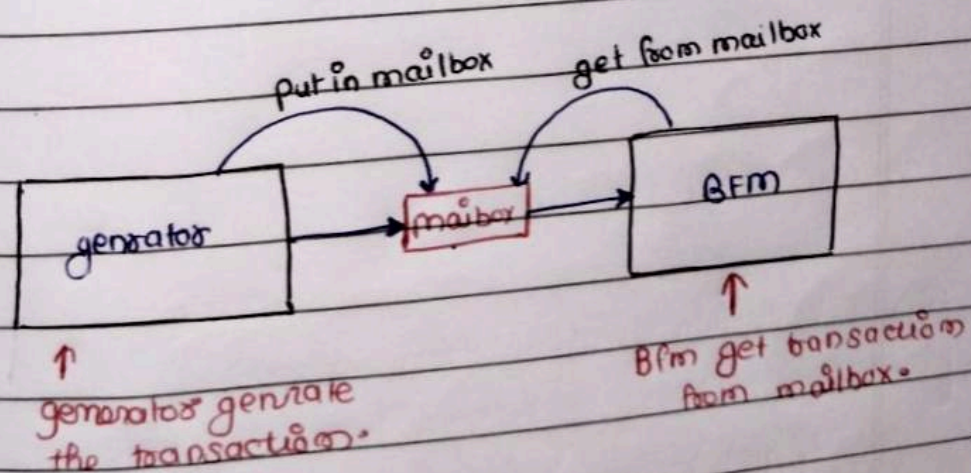 put in mailbox
get from mailbox
genrator
maibox
BFM
generator genrate
the transaction.
Bfm get transaction
from mailbox.